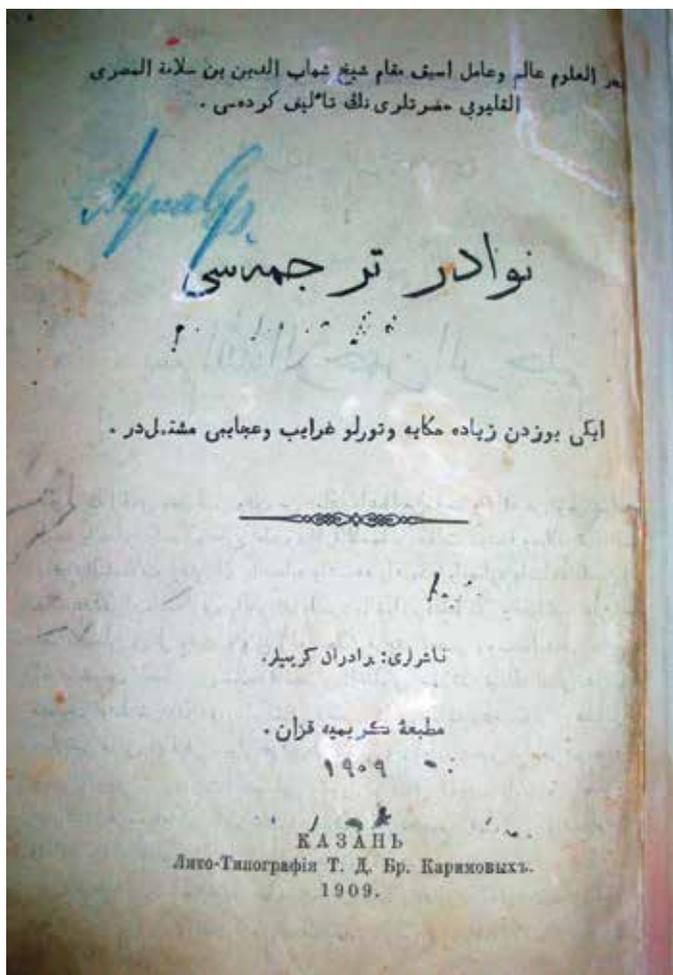 العلوم عالم وعامل اسبق مقام شيخ شهاب الدين بن سلامة المصرى
القليوبى حضرتلرى نڭ تأليف كرده سى .
نوادر ترجمه سى
ايكى يوزدن زياده حكايه وتورلو غرايب وعجايبى مشتمل در .
ناشرلرى: برادران كريميلر.
مطبعۀ كريميه قزان .
١٩٠٩
КАЗАНЬ
Лито-Типографія Т. Д. Бр. Каримовыхъ.
1909.